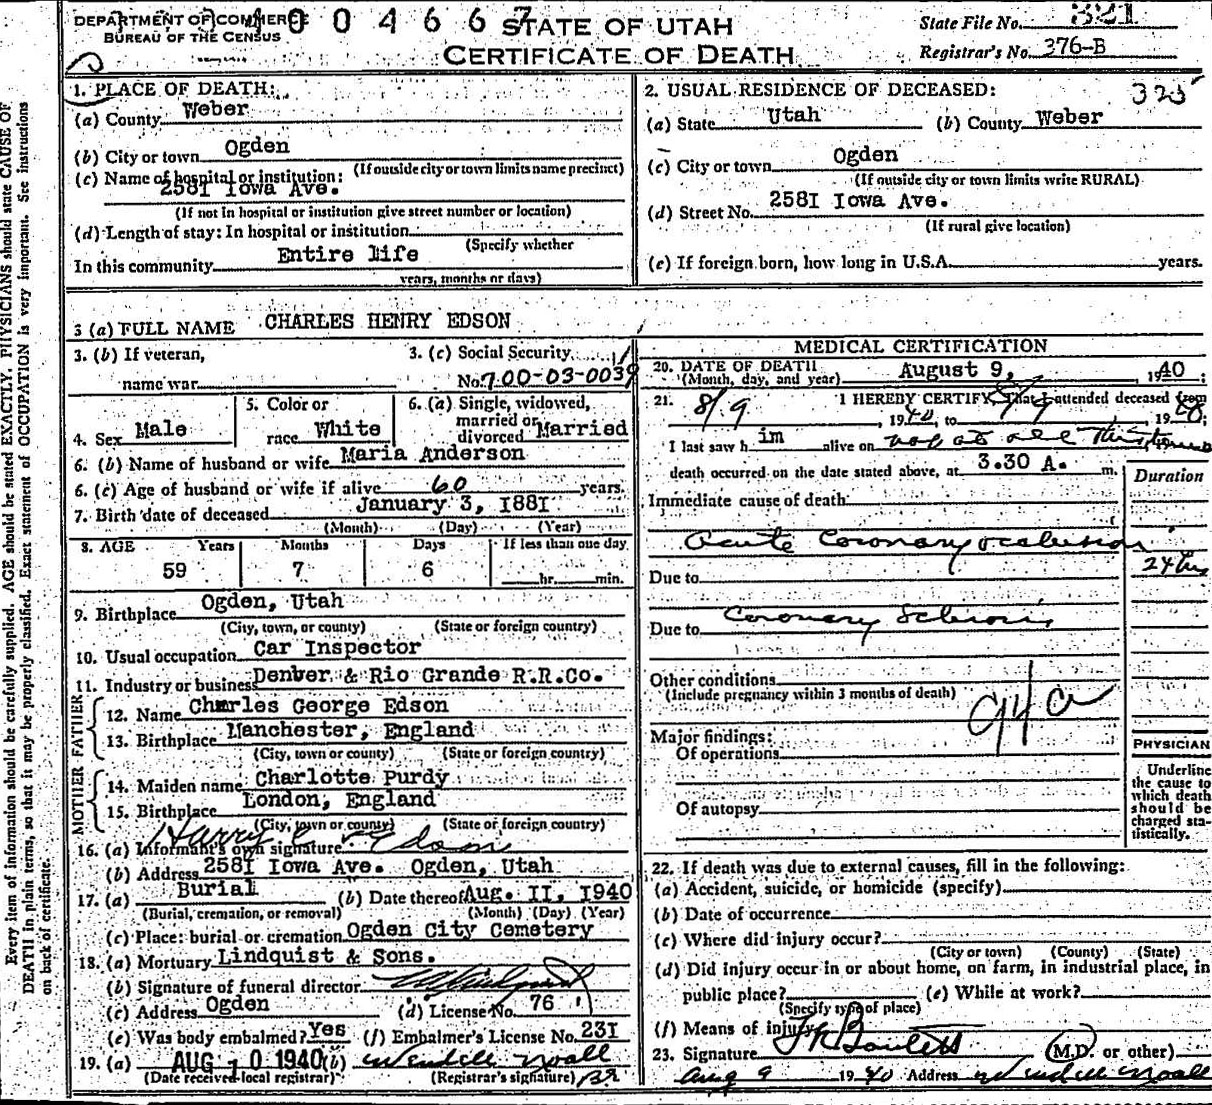 DEPARTMENT OF COMMERCE
BUREAU OF THE CENSUS
1 0 0 4 6 6 7
STATE OF UTAH
CERTIFICATE OF DEATH
State File No. 321
Registrar's No. 376-B
1. PLACE OF DEATH:
(a) County Weber
(b) City or town Ogden
(If outside city or town limits name precinct)
(c) Name of hospital or institution:
2581 Iowa Ave.
(If not in hospital or institution give street number or location)
(d) Length of stay: In hospital or institution
(Specify whether
In this community Entire life
years, months or days)
2. USUAL RESIDENCE OF DECEASED: 325
(a) State Utah (b) County Weber
(c) City or town Ogden
(If outside city or town limits write RURAL)
(d) Street No. 2581 Iowa Ave.
(If rural give location)
(e) If foreign born, how long in U.S.A. years.
3 (a) FULL NAME CHARLES HENRY EDSON
3. (b) If veteran,
name war
3. (c) Social Security
No. 700-03-0039
4. Sex Male
5. Color or
race White
6. (a) Single, widowed,
married or
divorced Married
6. (b) Name of husband or wife Maria Anderson
6. (c) Age of husband or wife if alive 60 years.
7. Birth date of deceased January 3, 1881
(Month) (Day) (Year)
8. AGE Years Months Days If less than one day
59 7 6 hr. min.
9. Birthplace Ogden, Utah
(City, town, or county) (State or foreign country)
10. Usual occupation Car Inspector
11. Industry or business Denver & Rio Grande R.R.Co.
FATHER
12. Name Charles George Edson
13. Birthplace Manchester, England
(City, town or county) (State or foreign country)
MOTHER
14. Maiden name Charlotte Purdy
15. Birthplace London, England
(City, town or county) (State or foreign country)
16. (a) Informant's own signature Harry Edson
(b) Address 2581 Iowa Ave. Ogden, Utah
17. (a) Burial (b) Date thereof Aug. 11, 1940
(Burial, cremation, or removal) (Month) (Day) (Year)
(c) Place: burial or cremation Ogden City Cemetery
18. (a) Mortuary Lindquist & Sons.
(b) Signature of funeral director
(c) Address Ogden (d) License No. 76
(e) Was body embalmed? Yes (f) Embalmer's License No. 231
19. (a) AUG 10 1940 (b) Wendell Noall
(Date received local registrar) (Registrar's signature)
MEDICAL CERTIFICATION
20. DATE OF DEATH
(Month, day, and year) August 9, 1940
21. I HEREBY CERTIFY, That I attended deceased from
8/9 1940, to 8/9 1940;
I last saw h im alive on not at all this time
death occurred on the date stated above, at 3.30 A. m.
Duration
Immediate cause of death
Acute Coronary occlusion
24 hrs
Due to
Coronary Sclerosis
Due to
Other conditions
(Include pregnancy within 3 months of death)
94a
Major findings:
Of operations
Of autopsy
PHYSICIAN
Underline
the cause to
which death
should be
charged sta-
tistically.
22. If death was due to external causes, fill in the following:
(a) Accident, suicide, or homicide (specify)
(b) Date of occurrence
(c) Where did injury occur?
(City or town) (County) (State)
(d) Did injury occur in or about home, on farm, in industrial place, in
public place? (e) While at work?
(Specify type of place)
(f) Means of injury
23. Signature (M.D. or other)
Aug 9 1940 Address Wendell Noall
Every item of information should be carefully supplied. AGE should be stated EXACTLY. PHYSICIANS should state CAUSE OF
DEATH in plain terms, so that it may be properly classified. Exact statement of OCCUPATION is very important. See instructions
on back of certificate.